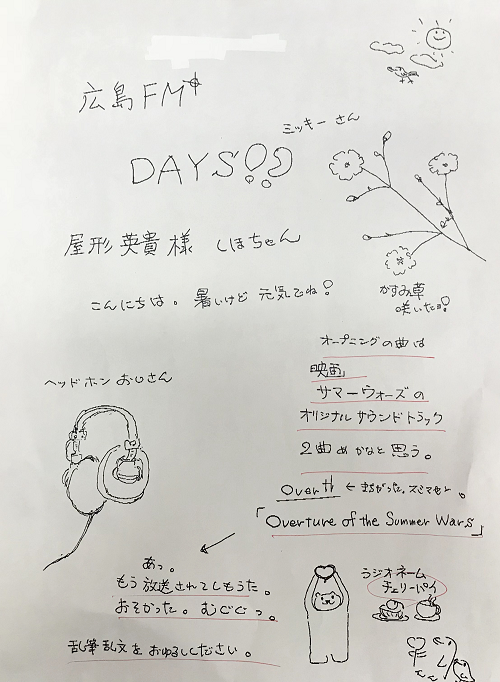 広島FM
ミッキーさん
DAYS!?
屋形英貴様 しほちゃん
こんにちは。暑いけど元気でね!
かすみ草
咲いたヨ!
オープニングの曲は
映画」
サマーウォーズの
オリジナルサウンドトラック
2曲めかなと思う。
Over ← まちがった。スミマセン。
「Overture of the Summer Wars」
ヘッドホンおじさん
あっ。
もう放送されてしもうた。
おそかった。むぐぐっ。
乱筆乱文をおゆるしください。
ラジオネーム
チェリーパイ